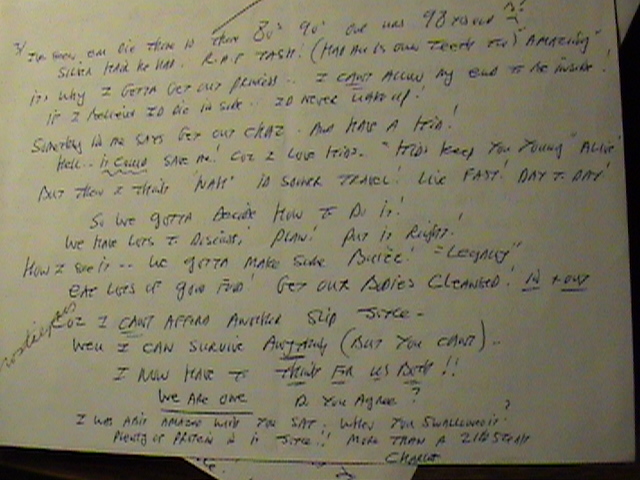 3/ I've seen em die in there in there 80's 90's one was 98 years old
Silver Hair He Had. R.I.P TASH! (Had All is own Teeth Too) "AMAZING"
it's why I Gotta Get out Princess.. I CANT Allow my end to be inside!
if I believed I'd die in side.. I'd never wake up!
Something in me says Get out Chaz. And Have A Kid!
Hell.. it Could save me! Coz I love Kids. "Kids Keep You Young" Alive!
But then I think "NAH" id sooner Travel! Live Fast! Day To Day!
So we gotta Decide How To Do it!
We Have Lots To Discuss! Plan! Put it Right!
How I see it -- We gotta make sure = "Legally"
Eat Lots of good Food! Get our Bodies Cleansed! In + out
Coz I Cant Afford Another Slip
Well I can survive Anything (But You Cant)..
I Now Have To Think For us Both!!
We Are one Do You Agree?
I was Amazed with You Sat. When You Swallowed it!
Plenty of Protein in it !! More than a 21lb Steak
Charlie